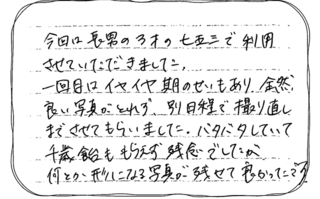 今回は長男の3才の七五三で利用
させていただきました。
一回目はイヤイヤ期のせいもあり、全然
良い写真がとれず、別日程で撮り直し
までさせてもらいました。バタバタしていて
千歳飴ももらえず残念でしたが、
何とか形になる写真が残せて良かったです